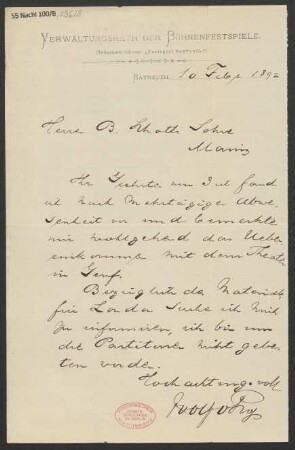 55 Nachl 100/B,
VERWALTUNGSRATH DER BÜHNENFESTSPIELE.
BAYREUTH, 10 Febr 1892
Herrn B. Schotts Söhne
Mainz
Ihr Geehrtes vom 3 ct fand
ich nach mehrtägiger Abwe-
senheit vor und bemerkte
mir das Ueber-
einkommen mit dem Theater
in Genf.
Bezüglich des Materials
für London suche ich mich
zu informiren, ich bin um
die Partituren nicht gebe-
ten worden.
Hochachtungsvoll